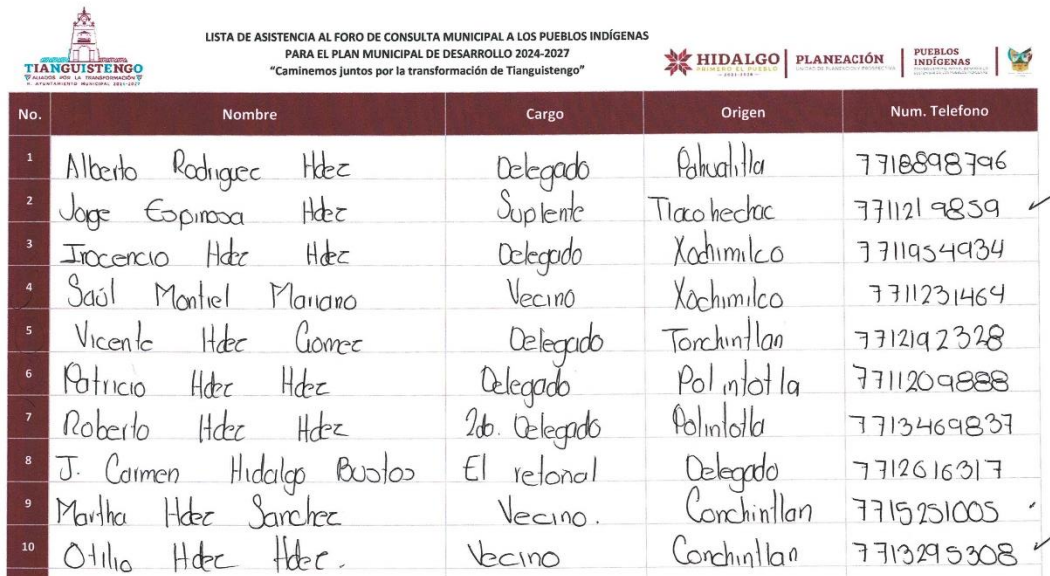 LISTA DE ASISTENCIA AL FORO DE CONSULTA MUNICIPAL A LOS PUEBLOS INDÍGENAS
PARA EL PLAN MUNICIPAL DE DESARROLLO 2024-2027
"Caminemos juntos por la transformación de Tianguistengo"
TIANGUISTENGO
ALIADOS POR LA TRANSFORMACIÓN
H. AYUNTAMIENTO MUNICIPAL 2024-2027
HIDALGO
PRIMERO EL PUEBLO
PLANEACIÓN
PUEBLOS
INDÍGENAS
No. Nombre Cargo Origen Num. Telefono
1 Alberto Rodriguez Hdez Delegado Pahuatitla 7718898796
2 Jorge Espinosa Hdez Suplente Tlacohechac 7711219859
3 Inocencio Hdez Hdez Delegado Xochimilco 7711954934
4 Saúl Montiel Mariano Vecino Xochimilco 7711231464
5 Vicente Hdez Gomez Delegado Tonchintlan 7712192328
6 Patricio Hdez Hdez Delegado Polintotla 7711209888
7 Roberto Hdez Hdez 2do. Delegado Polintotla 7713469837
8 J. Carmen Hidalgo Bustos El retoñal Delegado 7712616317
9 Martha Hdez Sanchez Vecino. Conchintlan 7715251005
10 Otilio Hdez Hdez. Vecino Conchintlan 7713295308